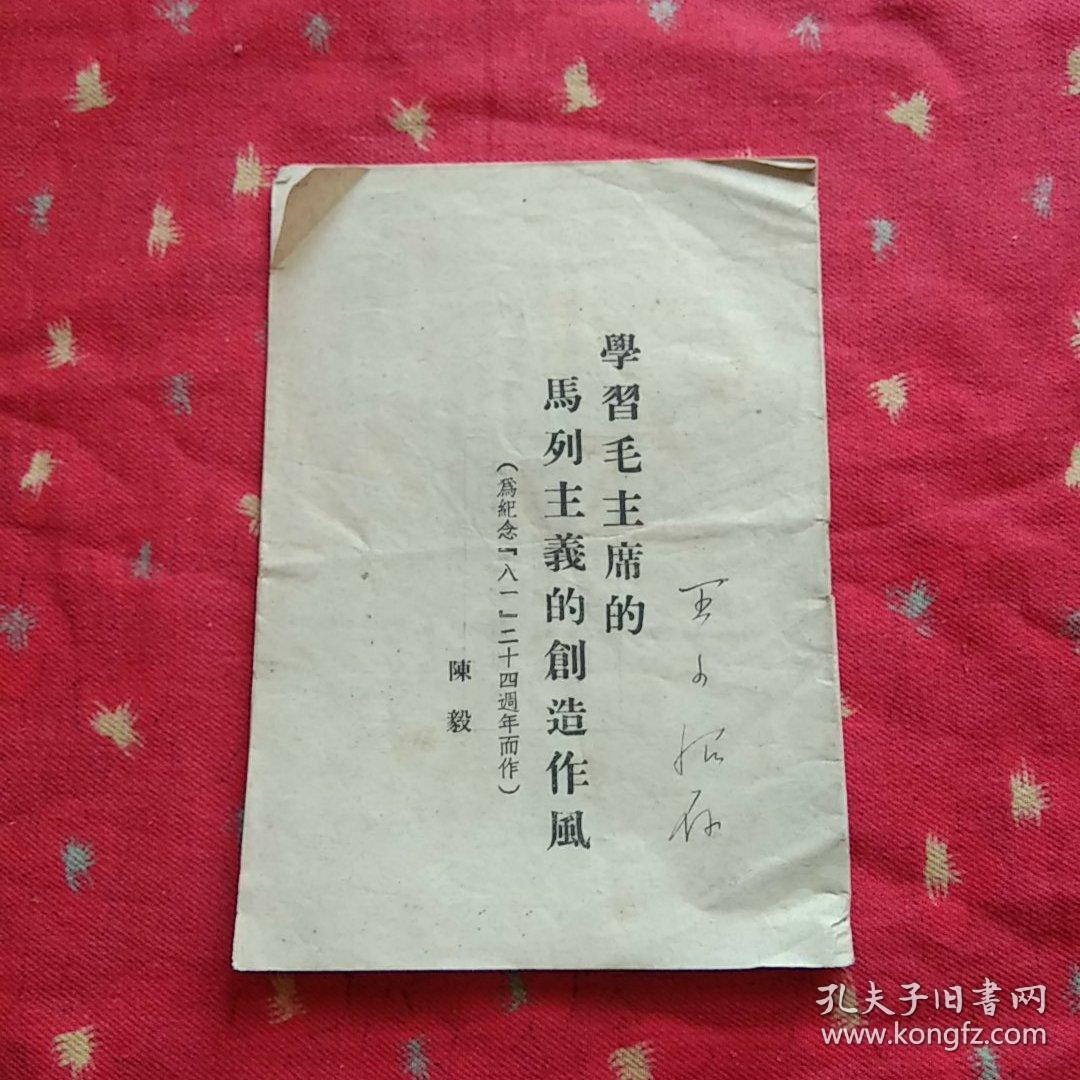 學習毛主席的
馬列主義的創造作風
（爲紀念『八一』二十四週年而作）
陳毅
孔夫子旧書网
www.kongfz.com